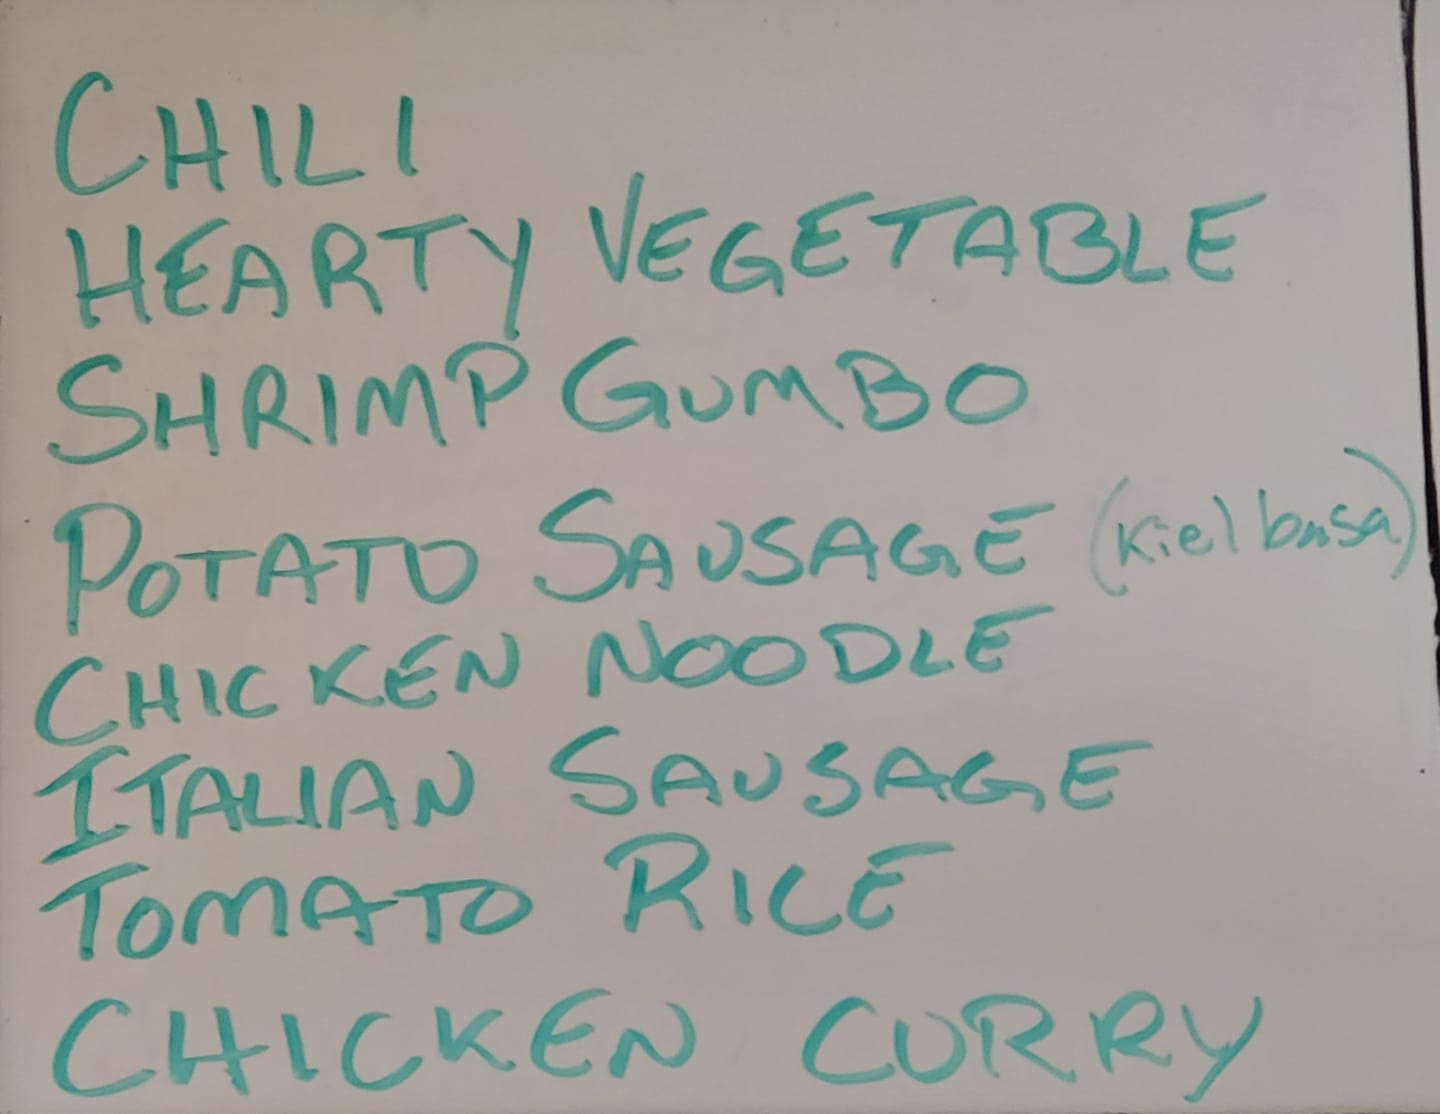 CHILI
HEARTY VEGETABLE
SHRIMP GUMBO
POTATO SAUSAGE (Kielbasa)
CHICKEN NOODLE
ITALIAN SAUSAGE
TOMATO RICE
CHICKEN CURRY